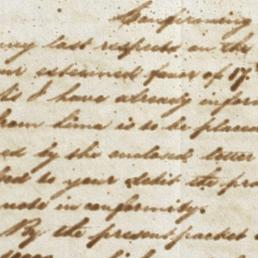 Confirming
my last respects on the
our esteemed favor of 17
I have already inform
from time is to be place
ed by the enclosed letter
to your debit the pro
note in conformity.
By the present packet